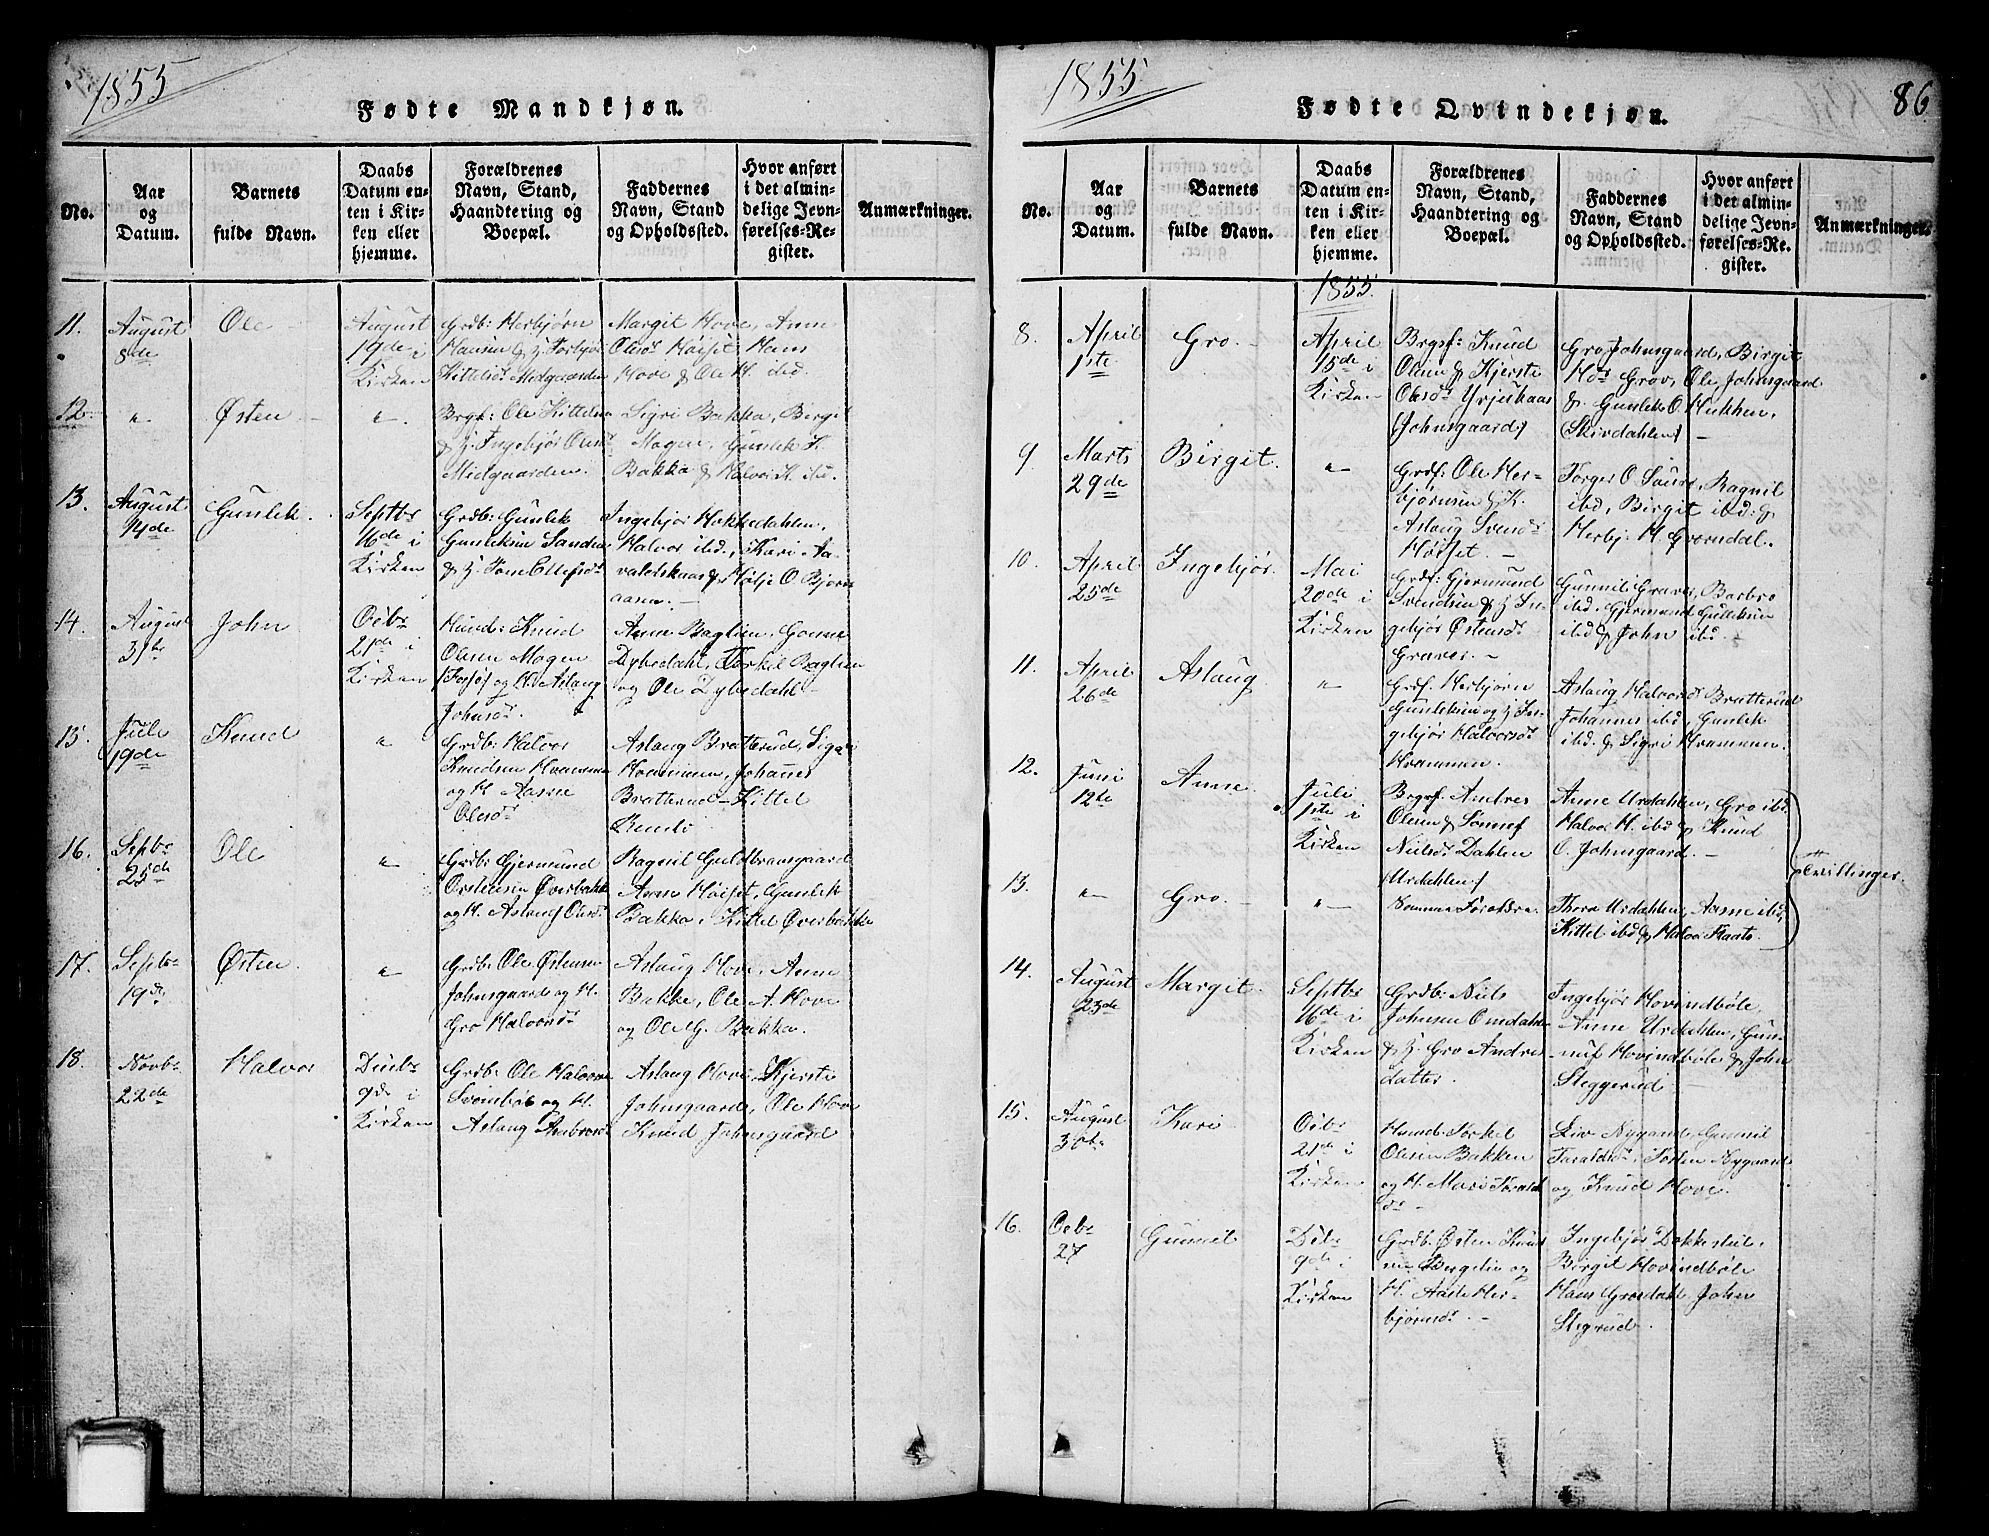 1855
Fødte Mandkjøn.
No.
Aar
og
Datum.
Barnets
fulde Navn.
Daabs
Datum en-
ten i Kir-
ken eller
hjemme.
Forældrenes
Navn, Stand,
Haandtering og
Boepæl.
Faddernes
Navn, Stand
og Opholdssted.
Hvor anført
i det almin-
delige Jevn-
førelses-Re-
gister.
Anmærkninger.
11.
August
8de
Ole
August
19de i
Kirken
Grdb: Herbjørn
Hansen &
Kittelsd: Midgaarden
Margit Hove, Anne
Olesd: Høiset, Hans
Hove & Ole H. ibd.
12.
"
Østen
"
Brgf: Ole Kittelsen
& H: Ingebjør Olesd:
Midgaarden.
Sigri Bakka, Birgit
Mogen, Gunlek K.
Bakka & Halvor K. ibd.
13.
August
14de
Gunlek.
Septbr
16de i
Kirken
Grdb: Gunlek
Gunleksen Sanden
&
Ingebjør Hokkedahlen,
Halvor ibd., Kari
& Høljе O. Bjorn
aasen. —
14.
August
31te
John
Octbr
21de i
Kirken
Husmd: Knud
Olesen Mogen
og H. Aslaug
Johnsd:
Anne Baglien, Gonne
Dybedahl, Torkil Baglien
og Ole Dybedahl —
15.
Juli
19de
Knud
"
Grdb: Halvor
Knudsen Hvammen
og H. Aasne
Olesd:
Aslaug Bratterud, Sigri
Hvammen, Johannes
Bratterud — Kittel
16.
Septbr
25de
Ole
"
Grdb: Gjermund
Østensen Øverbakk
og H. Aslaug Olesd:
Ragnil Guldbransgaard
Anne Høiset, Gunlek
Bakka, Kittel Øverbakke
17.
Septbr
19de
Østen.
"
Grdb: Ole Østensen
Johnsgaard og H.
Gro Halvorsd:
Aslaug Hove, Anne
Bakke, Ole A. Hove
og Ole G. Bakka.
18.
Novbr
22de
Halvor
Decbr
9de i
Kirken
Grdb: Ole Halvors
Svenbøe og H.
Aslaug Ambrosd:
Aslaug Hove, Kjersti
Johnsgaard, Ole Hove
Knud Johnsgaard
1855
Fødte Qvindekjøn.
86
No.
Aar
og
Datum.
Barnets
fulde Navn.
Daabs
Datum en-
ten i Kir-
ken eller
hjemme.
Forældrenes
Navn, Stand,
Haandtering og
Boepæl.
Faddernes
Navn, Stand
og Opholdssted.
Hvor anført
i det almin-
delige Jevn-
førelses-Re-
gister.
Anmærkninger.
1855.
8.
April
1ste
Gro. —
April
15de i
Kirken —
Brgsf: Knud
Olsen & Kjersti
Olesd:
(Johnsgaard)
Gro Johnsgaard, Birgit
Grov, Ole Johnsgaard
&. Gunlek O. Hukken,
(Skirdahlen) —
9.
Marts
29de
Birgit.
"
Grdf: Ole Her-
bjørnsen & K.
Aslaug Svensd:
Høiset. —
Torger O. Sauer, Ragnil
ibd, Birgit ibd: &
Herbj. H. Grøvndal.
10.
April
25de
Ingebjør.
Mai
20de i
Kirken
Grdf: Gjermund
Svendsen & H. In-
gebjør Østensd:
Graver. —
Gunnil Graver, Barbro
ibd, Gjermund Gulleksen
ibd & John ibd.
11.
April
26de
Aslaug.
"
Grdf. Herbjørn
Gunleksen og H. In-
gebjør Halvorsd:
Hvammen.
Aslaug Halvorsd: Bratterud
Johannes ibd, Gunlek
ibd. & Sigri Hvammen.
12.
Juni
12te
Anne.
Juli
1ste i
Kirken
Brgsf. Andres
Olsen & Sønnef
Nielsd: Dahlen
(Urdahlen)
Anne Urdahlen, Gro ibd.
Halvor H. ibd & Knud
O. Johnsgaard. —
Tvillinger.
13.
"
Gro. —
"
Samme Forældre.
Thora Urdahlen, Aasne ibd,
Kittel ibd & Halvor Flaato.
14.
August
23de
Margit.
Septbr
16de i
Kirken
Grdb: Niels
Johnsen Omdahlen
& H. Gro Andres
datter.
Ingebjør Hovindbøle,
Anne Urdahlen, Gun-
nuf Hovindbøle & John
Steggerud —
15.
August
30te
Kari
Octbr
21de i
Kirken
Husmd. Torkel
Olesen Bakken
og H. Mari Torald
sd: —
Liv Nygaard, Gunnil
Taraldsd:, Tosten Nygaard
og Knud Hove.
16.
Octbr
27
Gunnil
Decbr
9de i
Kirken
Grdb: Østen Knud
sen Bergelie og
H. Aaste Her-
bjørnsd: —
Ingebjør Dokkestul,
Birgit Hovindbøle
Hans Grøsdahl John
Stegrud.